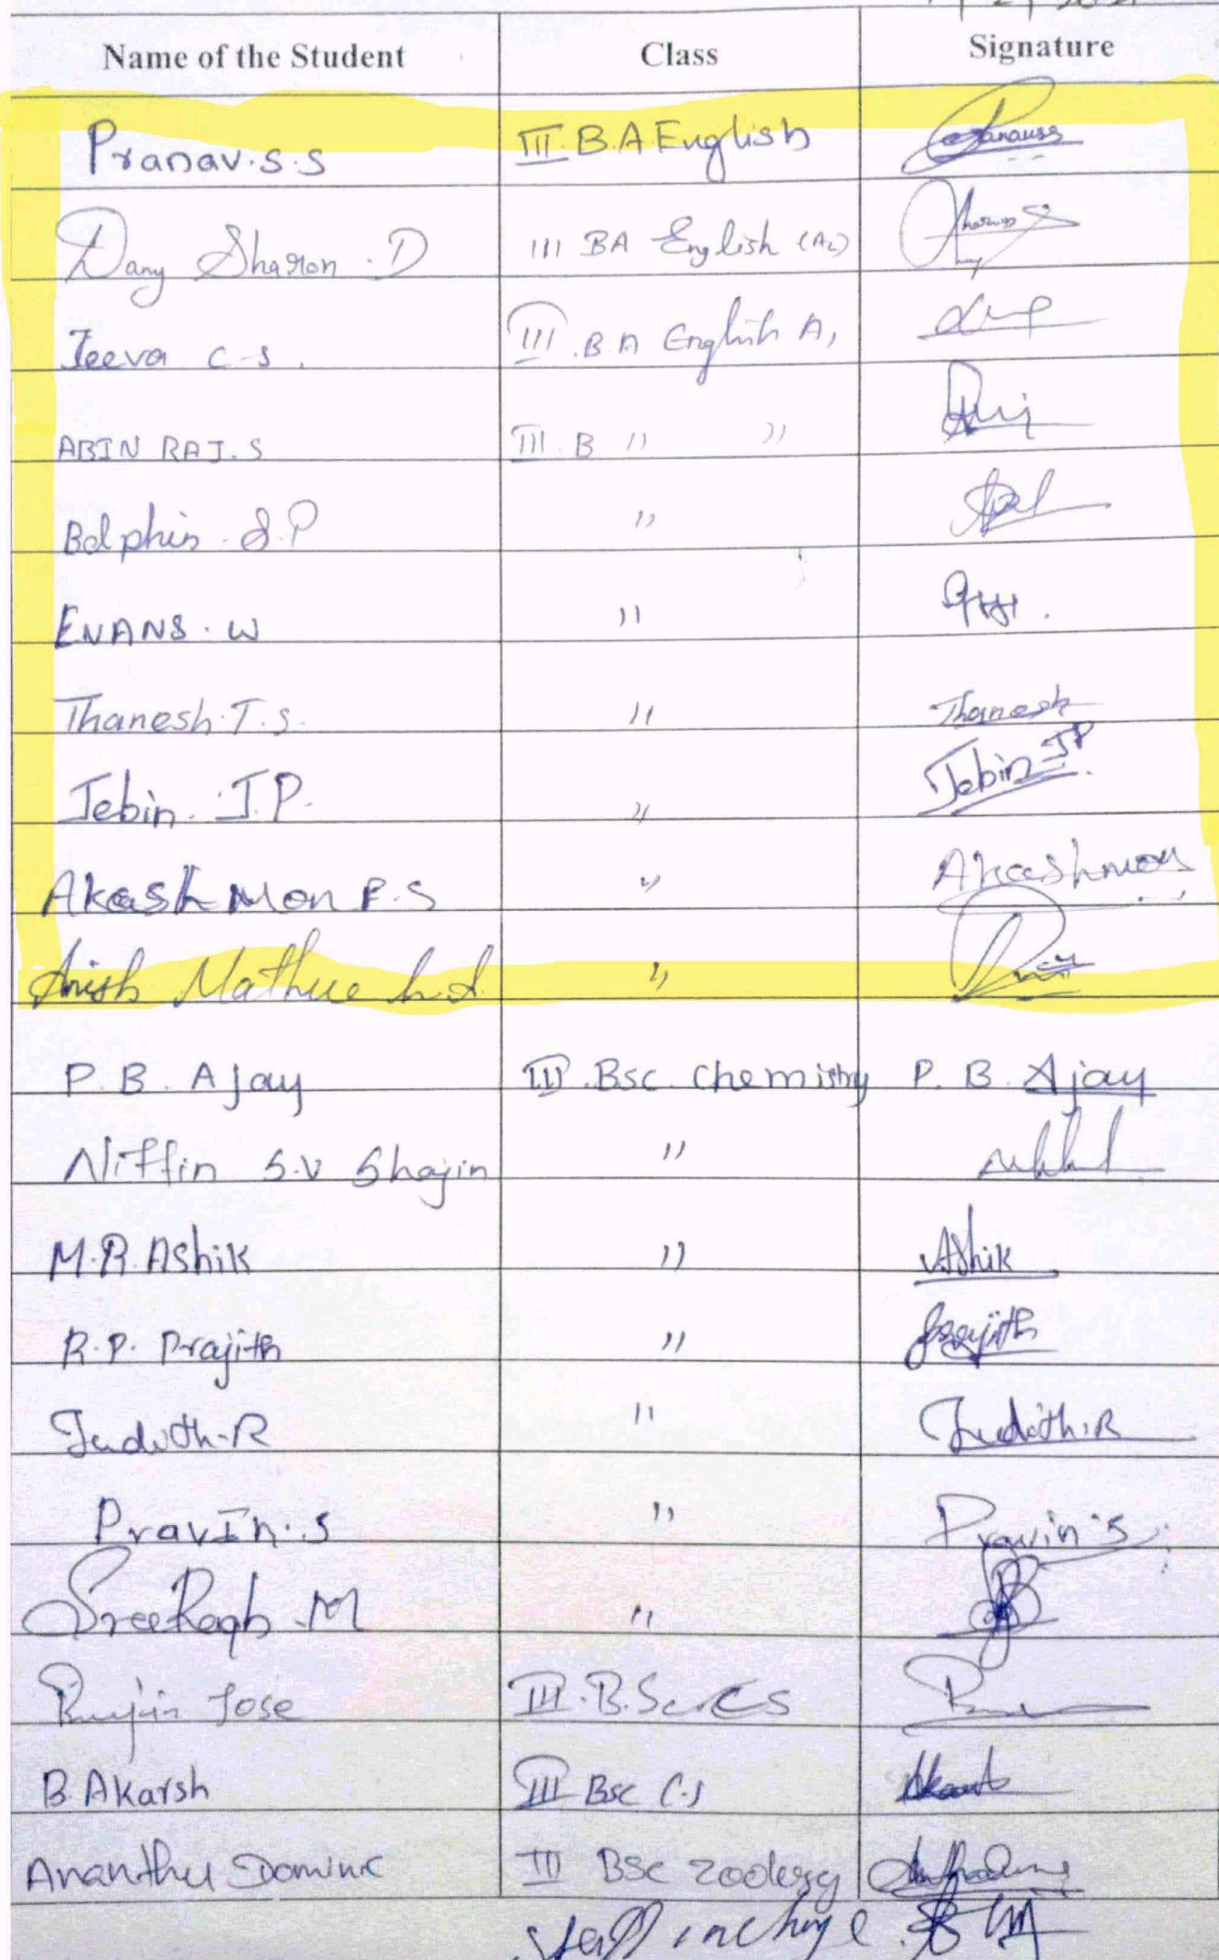 Name of the Student Class Signature
Pranav.s.s III. B.A English Pranavss
Dany Sharon.D III BA English (A2)
Jeeva C.S. III.B.A English A1
ABIN RAJ.S III.B " "
Belphin.S.P "
EVANS.W "
Thanesh.T.S. " Thanesh
Jebin.J.P. " Jebin JP
Akash Mon P.S " Akashmon
Anish Mathue "
P.B.Ajay III.Bsc.Chemistry P.B.Ajay
Niffin S.V Shajin "
M.R.Ashik " Ashik
R.P.Prajith " Prajith
Judith.R " Judith.R
PravIn.s " Pravin.s
SreeRagh.M "
Jose III.B.Sc.CS
B.Akarsh III Bsc C.S Akarsh
Ananthu Dominic III BSC Zoology
Staff incharge